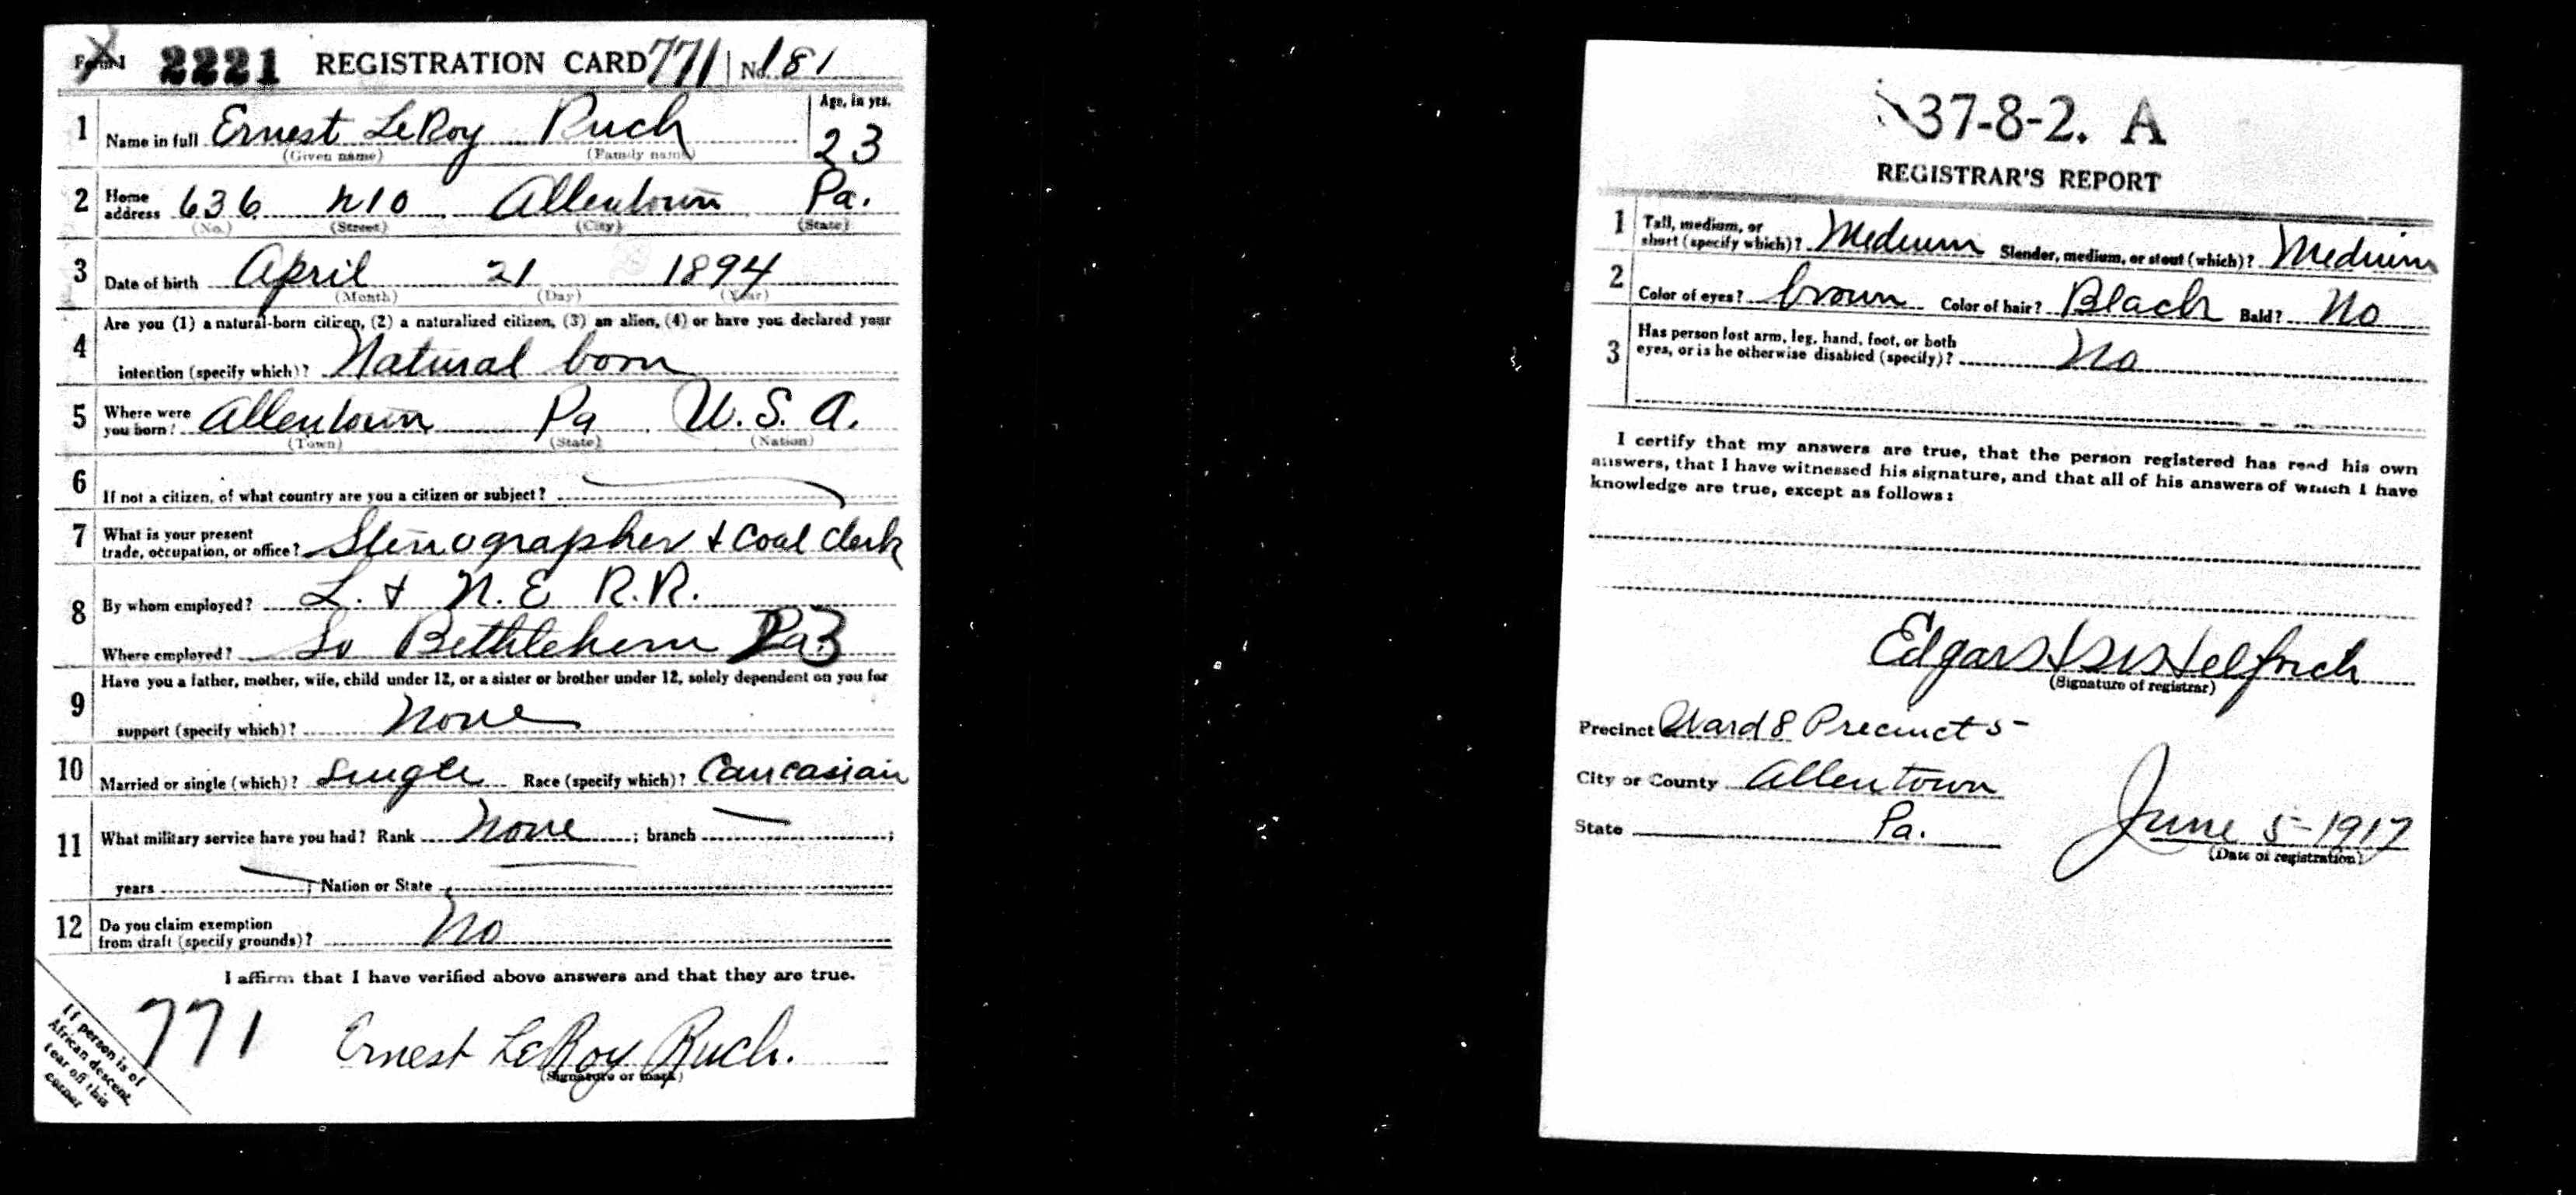 Form 1 2221 REGISTRATION CARD 771 No. 181
1 Name in full Ernest LeRoy Ruch Age, in yrs. 23
(Given name) (Family name)
2 Home address 636 N10 Allentown Pa.
(No.) (Street) (City) (State)
3 Date of birth April 21 1894
(Month) (Day) (Year)
4 Are you (1) a natural-born citizen, (2) a naturalized citizen, (3) an alien, (4) or have you declared your
intention (specify which)? Natural born
5 Where were you born? Allentown Pa U.S.A.
(Town) (State) (Nation)
6 If not a citizen, of what country are you a citizen or subject?
7 What is your present trade, occupation, or office? Stenographer & Coal clerk
8 By whom employed? L. & N. E R.R.
Where employed? So Bethlehem Pa. 3
9 Have you a father, mother, wife, child under 12, or a sister or brother under 12, solely dependent on you for
support (specify which)? None
10 Married or single (which)? Single Race (specify which)? Caucasian
11 What military service have you had? Rank None ; branch ;
years ; Nation or State
12 Do you claim exemption from draft (specify grounds)? No
I affirm that I have verified above answers and that they are true.
771 Ernest LeRoy Ruch.
(Signature or mark)
If person is of
African descent,
tear off this
corner
37-8-2. A
REGISTRAR'S REPORT
1 Tall, medium, or short (specify which)? Medium Slender, medium, or stout (which)? Medium
2 Color of eyes? brown Color of hair? Black Bald? No
3 Has person lost arm, leg, hand, foot, or both
eyes, or is he otherwise disabled (specify)? No
I certify that my answers are true, that the person registered has read his own
answers, that I have witnessed his signature, and that all of his answers of which I have
knowledge are true, except as follows:
Helfrich
(Signature of registrar)
Precinct Ward 8 Precinct 5
City or County Allentown
State Pa.
June 5-1917
(Date of registration)